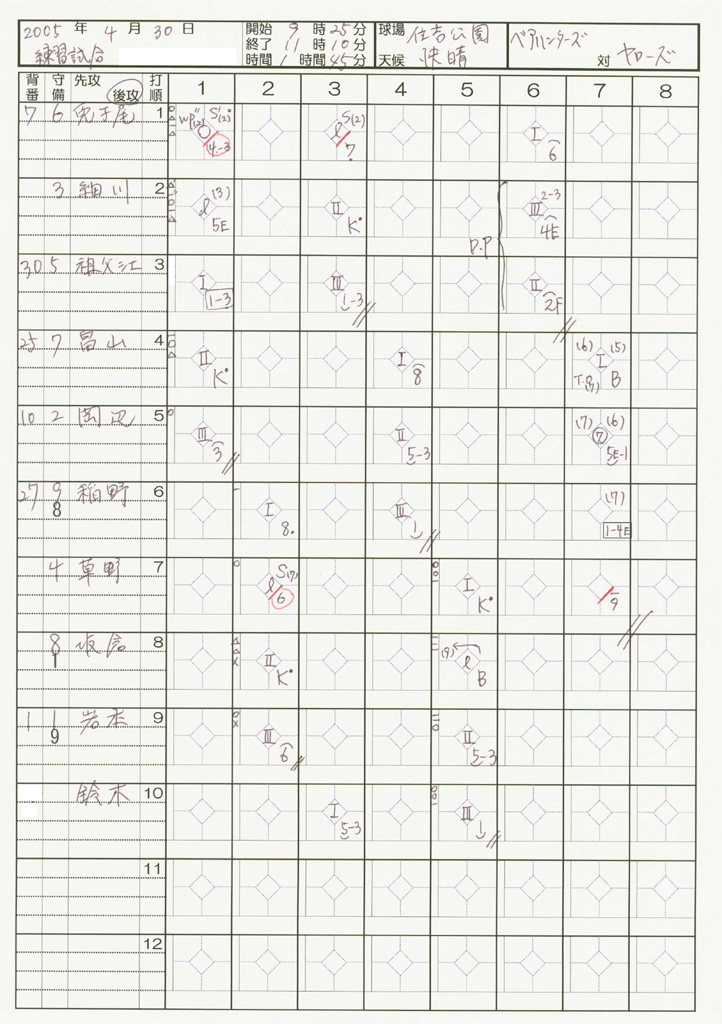 2005年 4月 30日 開始 9時25分 球場 住吉公園 ベアハンターズ
練習試合 終了 11時10分
時間 1時間45分 天候 快晴 対 ヤローズ
背番 守備 先攻 後攻 打順 1 2 3 4 5 6 7 8
7 6 兎子尾 1 WP(2) S'(2) 4-3 S(2) 7 I 6
3 細川 2 (3) 5E II K III 2-3 4E
D.P
30 5 祖父江 3 I 1-3 III 1-3 II 2F
25 7 冨山 4 II K I 8 (6) I (5) B
10 2 岡辺 5 III 3 II 5-3 (7) (6) 7 5E-1
27 9 稲野 6 I 8 III 1 (7) 1-4E
8
4 草野 7 S(7) 6 I K 9
8 坂倉 8 II K (9) B
1
1 1 岩本 9 III 6 II 5-3
9
鈴木 10 I 5-3 III 1
11
12